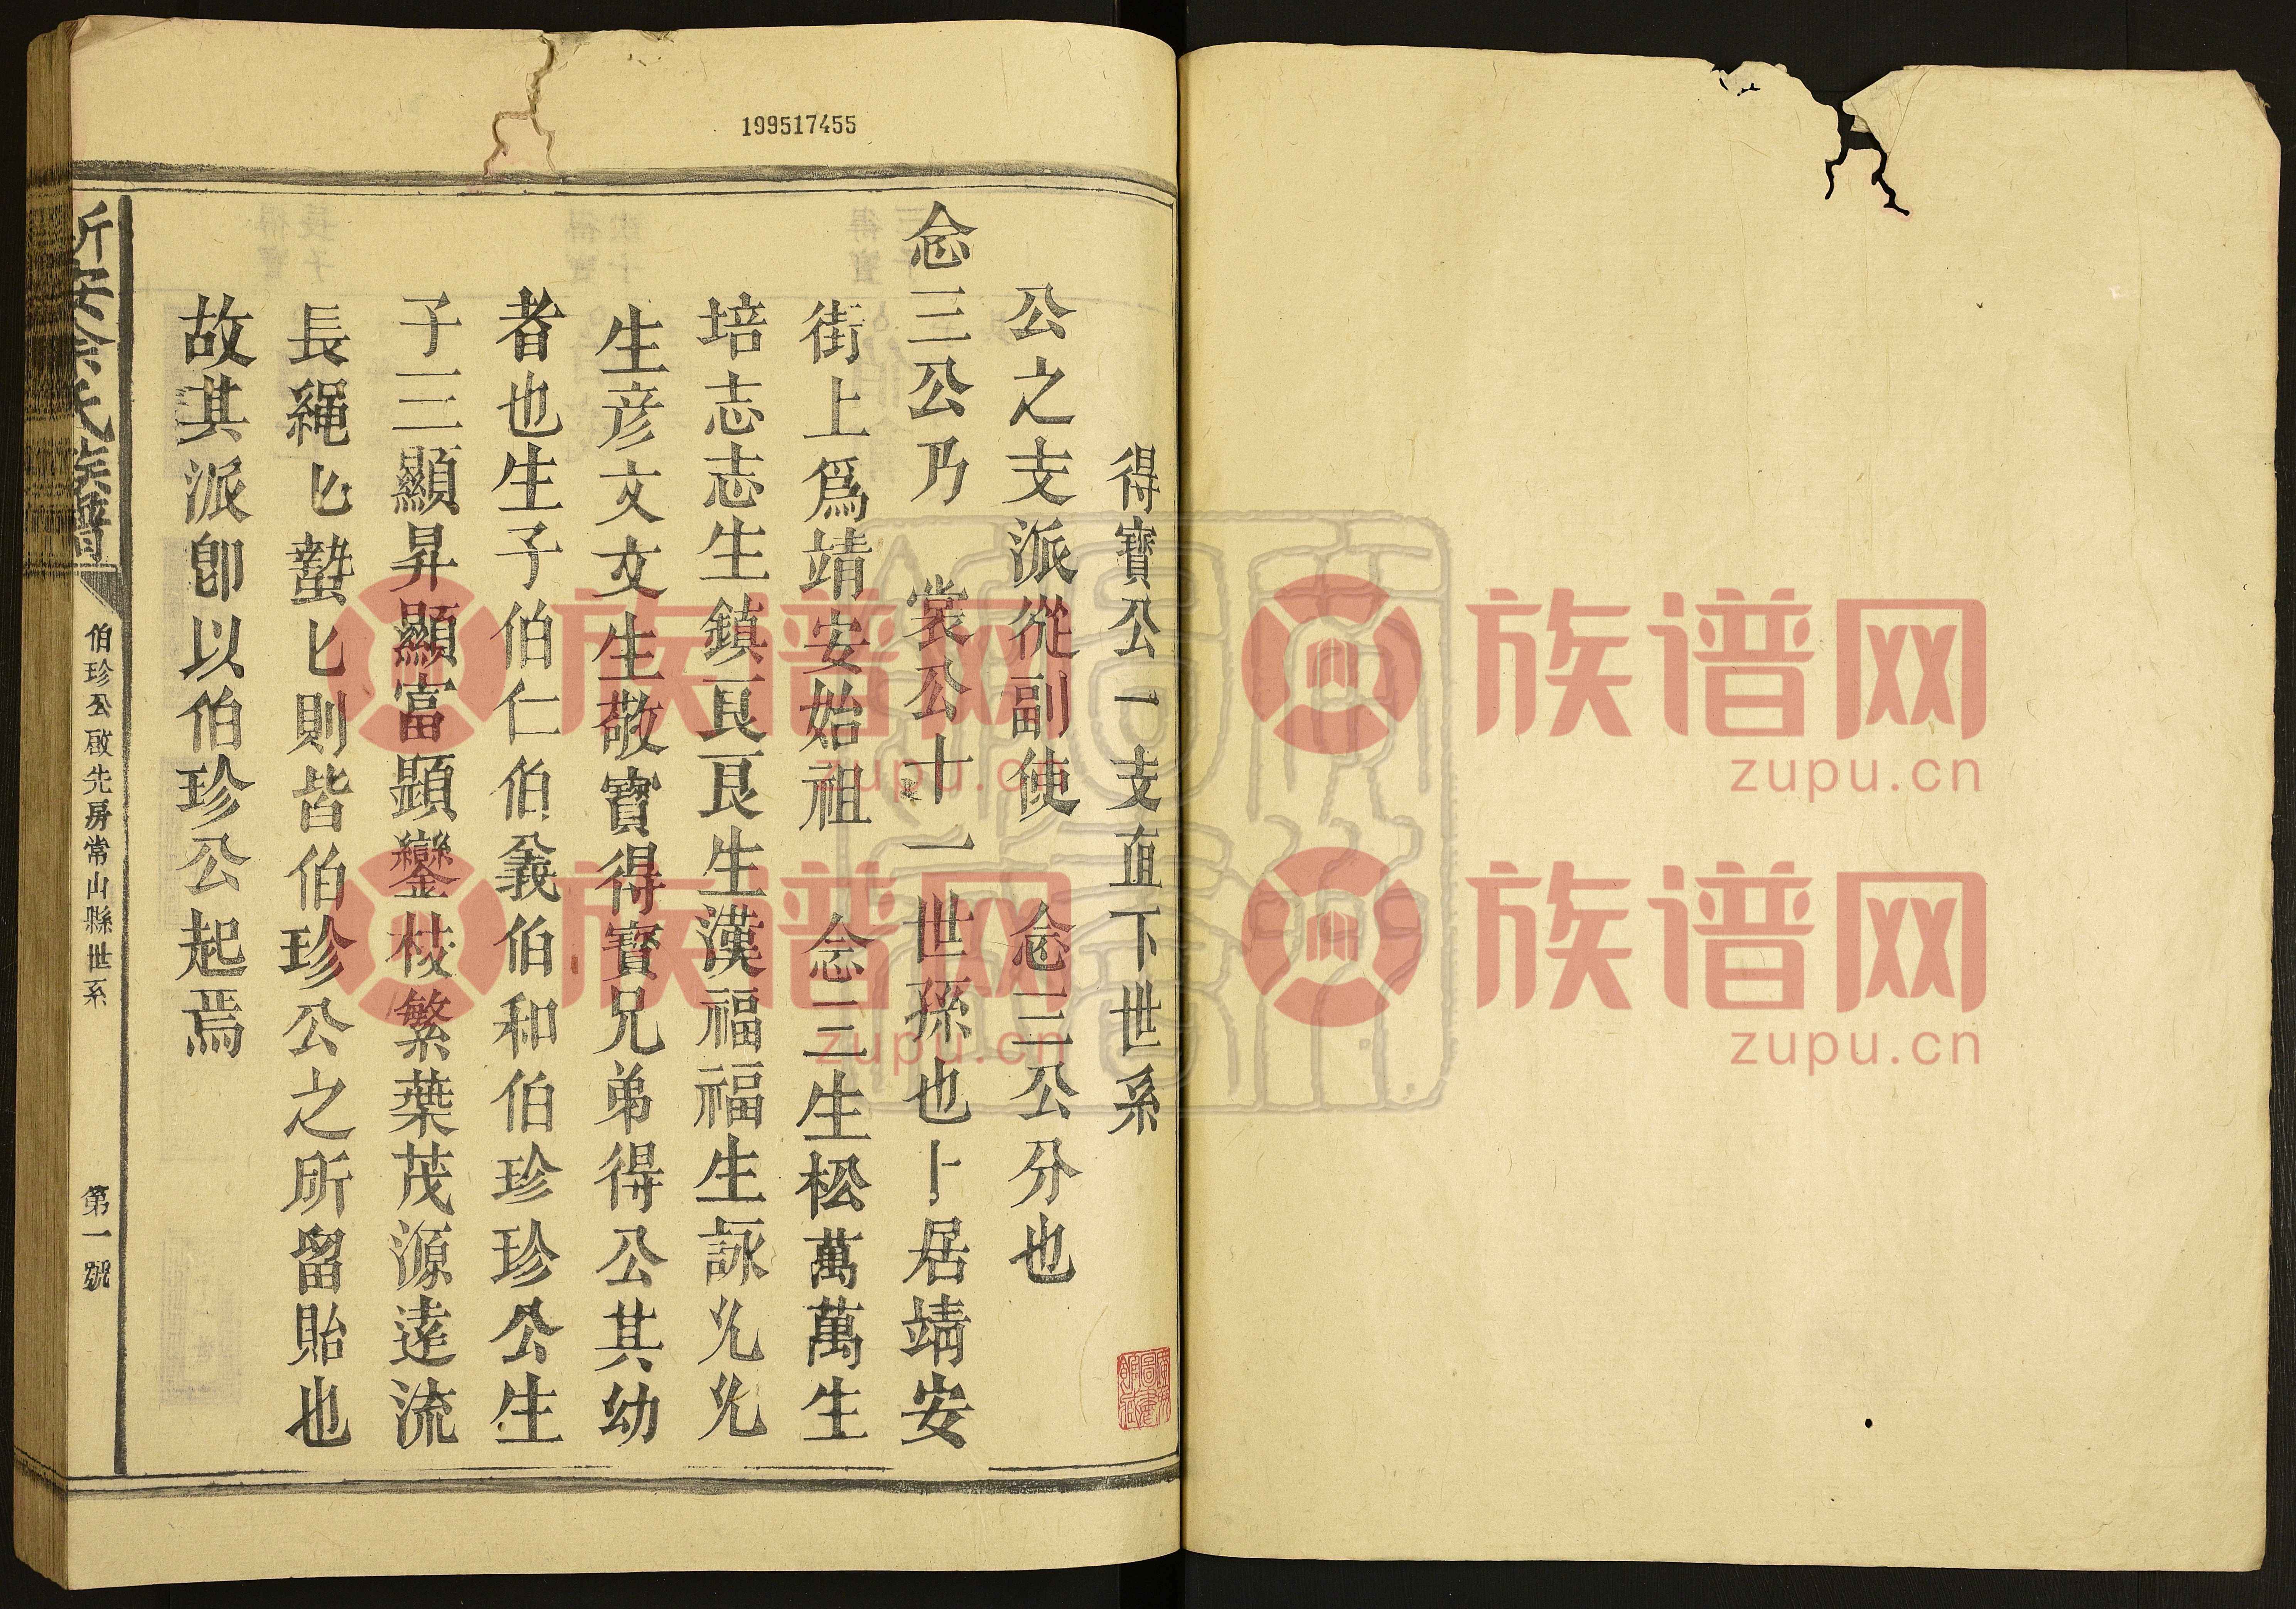 199517455
得寶公一支直下世系
公之支派從副使 念三公分也
念三公乃 裳公十一世孫也卜居靖安
街上爲靖安始祖 念三生松萬萬生
培志志生鎮艮艮生漢福福生詠允允
生彦文文生敬寶得寶兄弟得公其幼
者也生子伯仁伯義伯和伯珍珍公生
子三顯昇顯富顕鑾枝繁葉茂源逹流
長繩匕蟄匕則皆伯珍公之所留貽也
故其派卽以伯珍公起焉
新安余氏族譜
伯珍公啟先房常山縣世系
第一號
族谱网
zupu.cn
族谱网
zupu.cn
族谱网
zupu.cn
族谱网
zupu.cn